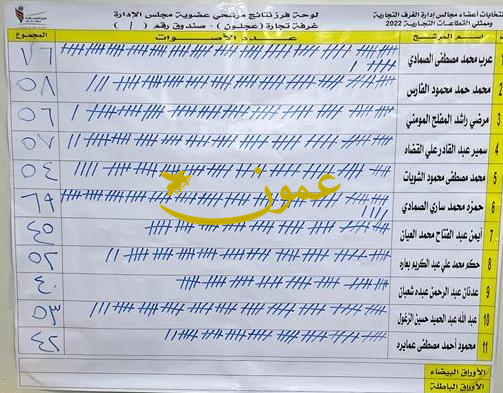 انتخابات أعضاء مجالس إدارة الغرف التجارية
وممثلي القطاعات التجارية 2022
لوحة فرز نتائج مرشحي عضوية مجلس الإدارة
غرفة تجارة (عجلون) - صندوق رقم ( )
اسم المرشح عدد الأصوات المجموع
1 عرب محمد مصطفى الصمادي ٧٦
2 محمد حمد محمود الفارس ٥٨
3 مرضي راشد المفلح المومني ٥٦
4 سمير عبد القادر علي القضاه ٥٧
5 محمد مصطفى محمود الشويات ٥٤
6 حمزه محمد ساري الصمادي ٦٩
7 أيمن عبد الفتاح محمد العيان ٤٥
8 حكم محمد علي عبد الكريم بعاره ٥٢
9 عدنان عبد الرحمن عبده شعبان ٤٠
10 عبد الله عبد الحميد حسين الزغول ٥٣
11 محمود أحمد مصطفى عمايره ٤٢
الأوراق البيضاء
الأوراق الباطلة
عمون